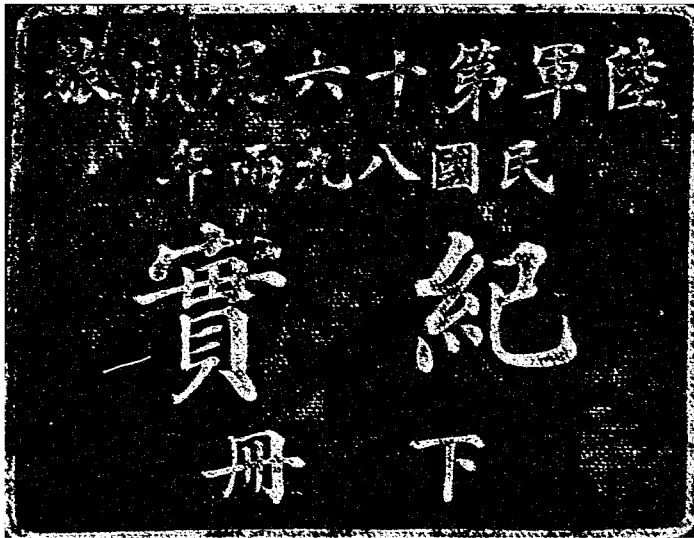 陸軍第十六混成旅
民國八九兩年
紀實
下冊